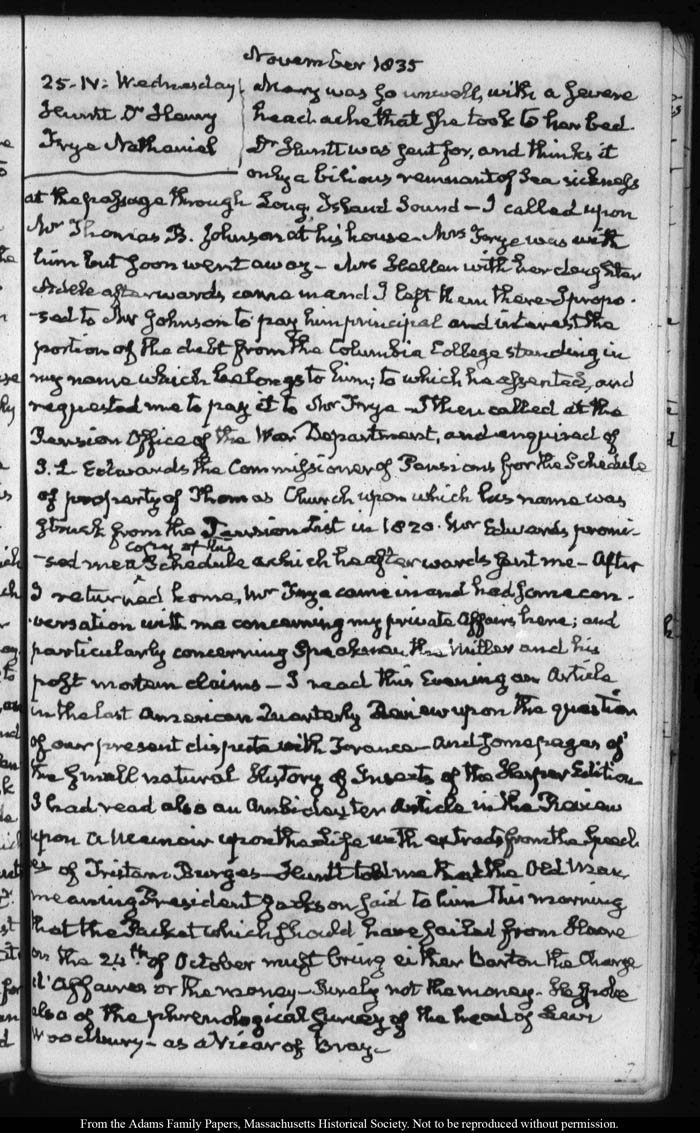 November 1835
25. IV: Wednesday
Huntt Dr Henry
Frye Nathaniel
Mary was so unwell, with a severe
head ache that she took to her bed.
Dr Huntt was sent for, and thinks it
only a bilious remnant of Sea sickness
at the passage through Long Island Sound — I called upon
Mr Thomas B. Johnson at his house. Mrs Frye was with
him but soon went away — Mrs Hellen with her daughter
Adele afterwards came in and I left them there. I propo-
-sed to Mr Johnson to pay him principal and interest the
portion of the debt from the Columbia College standing in
my name which belongs to him; to which he assented, and
requested me to pay it to Mr Frye — I then called at the
Pension Office of the War Department, and enquired of
J. L. Edwards the Commissioner of Pensions for the Schedule
of property of Thomas Church upon which his name was
struck from the Pension List in 1820. Mr Edwards promi-
copy of this
-sed me a Schedule which he afterwards sent me — After
I returned home, Mr Frye came in and had some con-
-versation with me concerning my private Affairs here; and
particularly concerning Spreaknau the Miller and his
post mortem claims — I read this Evening an Article
in the last American Quarterly Review upon the question
of our present dispute with France — and some pages of
the small natural History of Insects of the Harper Edition
I had read also an Ambidexter Article in the Review
upon a Memoir upon the Life with extracts from the Speech
es of Tristam Burges — Huntt told me that the Old Man
meaning President Jackson said to him this morning
that the Packet which should have sailed from Havre
on the 24th of October must bring either Barton the Charge
d'Affaires or the money — Surely not the money. He spoke
also of the phrenological survey of the head of Levi
Woodbury — as a Vicar of Bray —
From the Adams Family Papers, Massachusetts Historical Society. Not to be reproduced without permission.